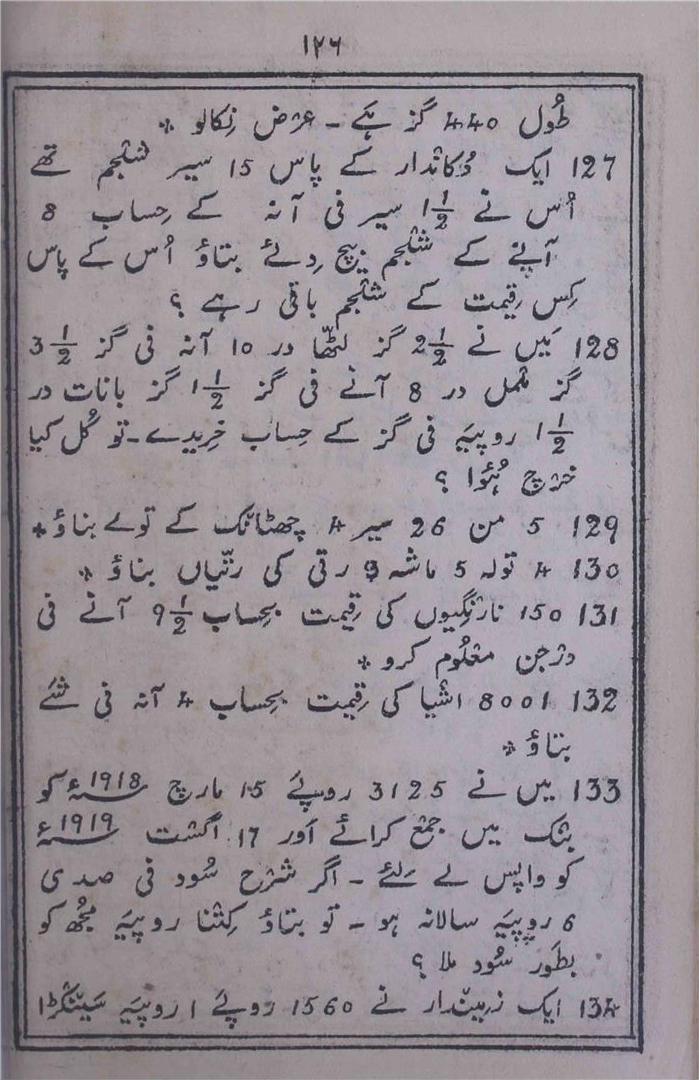 ۱۲۶
طُول 440 گز ہَے ۔ عرض نِکالو *
127 ایک دُکاندار کے پاس 15 سیر شلجم تھے
اُس نے 1 1/2 سیر فی آنہ کے حِساب 8
آنے کے شلجم بیچ دِئے بتاؤ اُس کے پاس
کِس قِیمت کے شلجم باقی رہے ؟
128 مَیں نے 2 1/2 گز لٹھّا در 10 آنہ فی گز 3 1/2
گز ململ در 8 آنے فی گز 1 1/2 گز بانات در
1 1/2 روپیَہ فی گز کے حِساب خرِیدے ۔ تو کُل کیا
خرچ ہُئوا ؟
129 5 من 26 سیر 4 چھٹانک کے تولے بناؤ *
130 4 تولہ 5 ماشہ 3 رتی کی رتّیاں بناؤ *
131 150 نارنگیوں کی قِیمت بحِساب 9 1/2 آنے فی
درجن معلُوم کرو *
132 8001 اشیا کی قِیمت بحِساب 4 آنہ فی شَے
بتاؤ *
133 میں نے 3125 روپَئے 15 مارچ 1918ء کو
بنک میں جمع کرائے اَور 17 اگست 1919ء
کو واپس لے لِئے ۔ اگر شرح سُود فی صدی
6 روپیَہ سالانہ ہو ۔ تو بتاؤ کِتنا روپیَہ مُجھ کو
بطَور سُود ملا ؟
134 ایک زمِیندار نے 1560 روپَئے 1 روپیَہ سَینکڑا